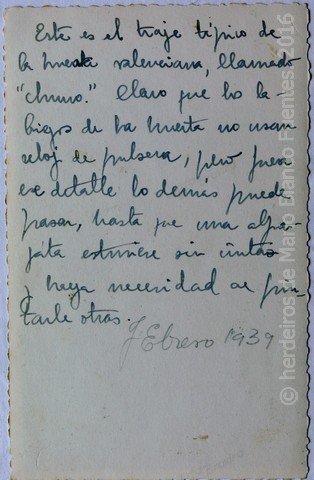 Este es el traje típico de
la huerta valenciana, llamado
"churro." Claro que los la-
bigos de la huerta no usan
reloj de pulsera, pero fuera
ese detalle lo demás puede
pasar, hasta que una alpar-
gata estuviese sin cintas
y haya necesidad de pin-
tarle otras.
FEbrero 1939
© herdeiros de Mario Blanco Fuentes, 2016